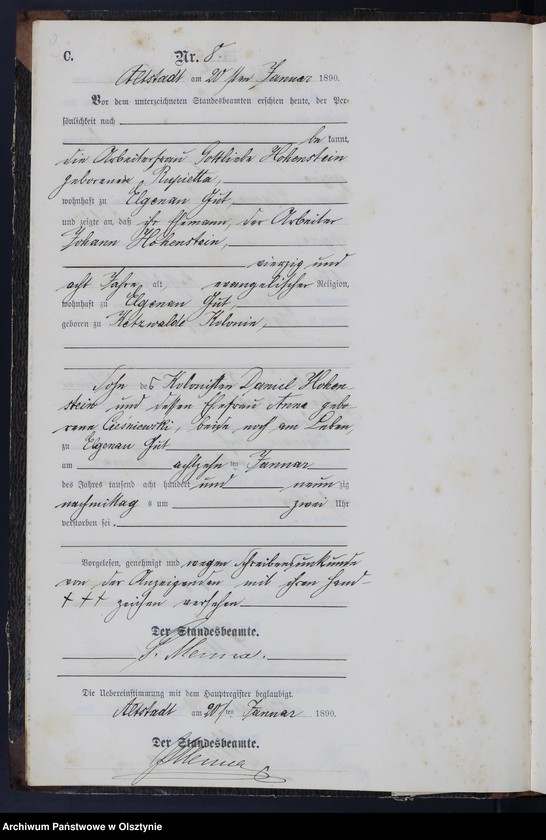 C.
Nr. 8.
Altstadt am 20sten Januar 1890.
Vor dem unterzeichneten Standesbeamten erschien heute, der Per-
sönlichkeit nach
be kannt,
die Arbeiterfrau Gottliebe Hohenstein
geborenen Rupietta,
wohnhaft zu Elgenau Gut,
und zeigte an, daß ihr Ehemann, der Arbeiter
Johann Hohenstein,
vierzig und
acht Jahre alt, evangelischer Religion,
wohnhaft zu Elgenau Gut,
geboren zu Ketzwalde Kolonie,
Sohn des Kolonisten Daniel Hohen-
stein und dessen Ehefrau Anna gebo-
rene Ciesniewski, beide noch am Leben,
zu Elgenau Gut
am achtzehn ten Januar
des Jahres tausend acht hundert und neun zig
nachmittag s um zwei Uhr
verstorben sei.
Vorgelesen, genehmigt und wegen Schreibensunkunde
von der Anzeigenden mit ihren Hand-
+ + + zeichen versehen
Der Standesbeamte.
Die Uebereinstimmung mit dem Hauptregister beglaubigt.
Altstadt am 20sten Januar 1890.
Der Standesbeamte.
Archiwum Państwowe w Olsztynie